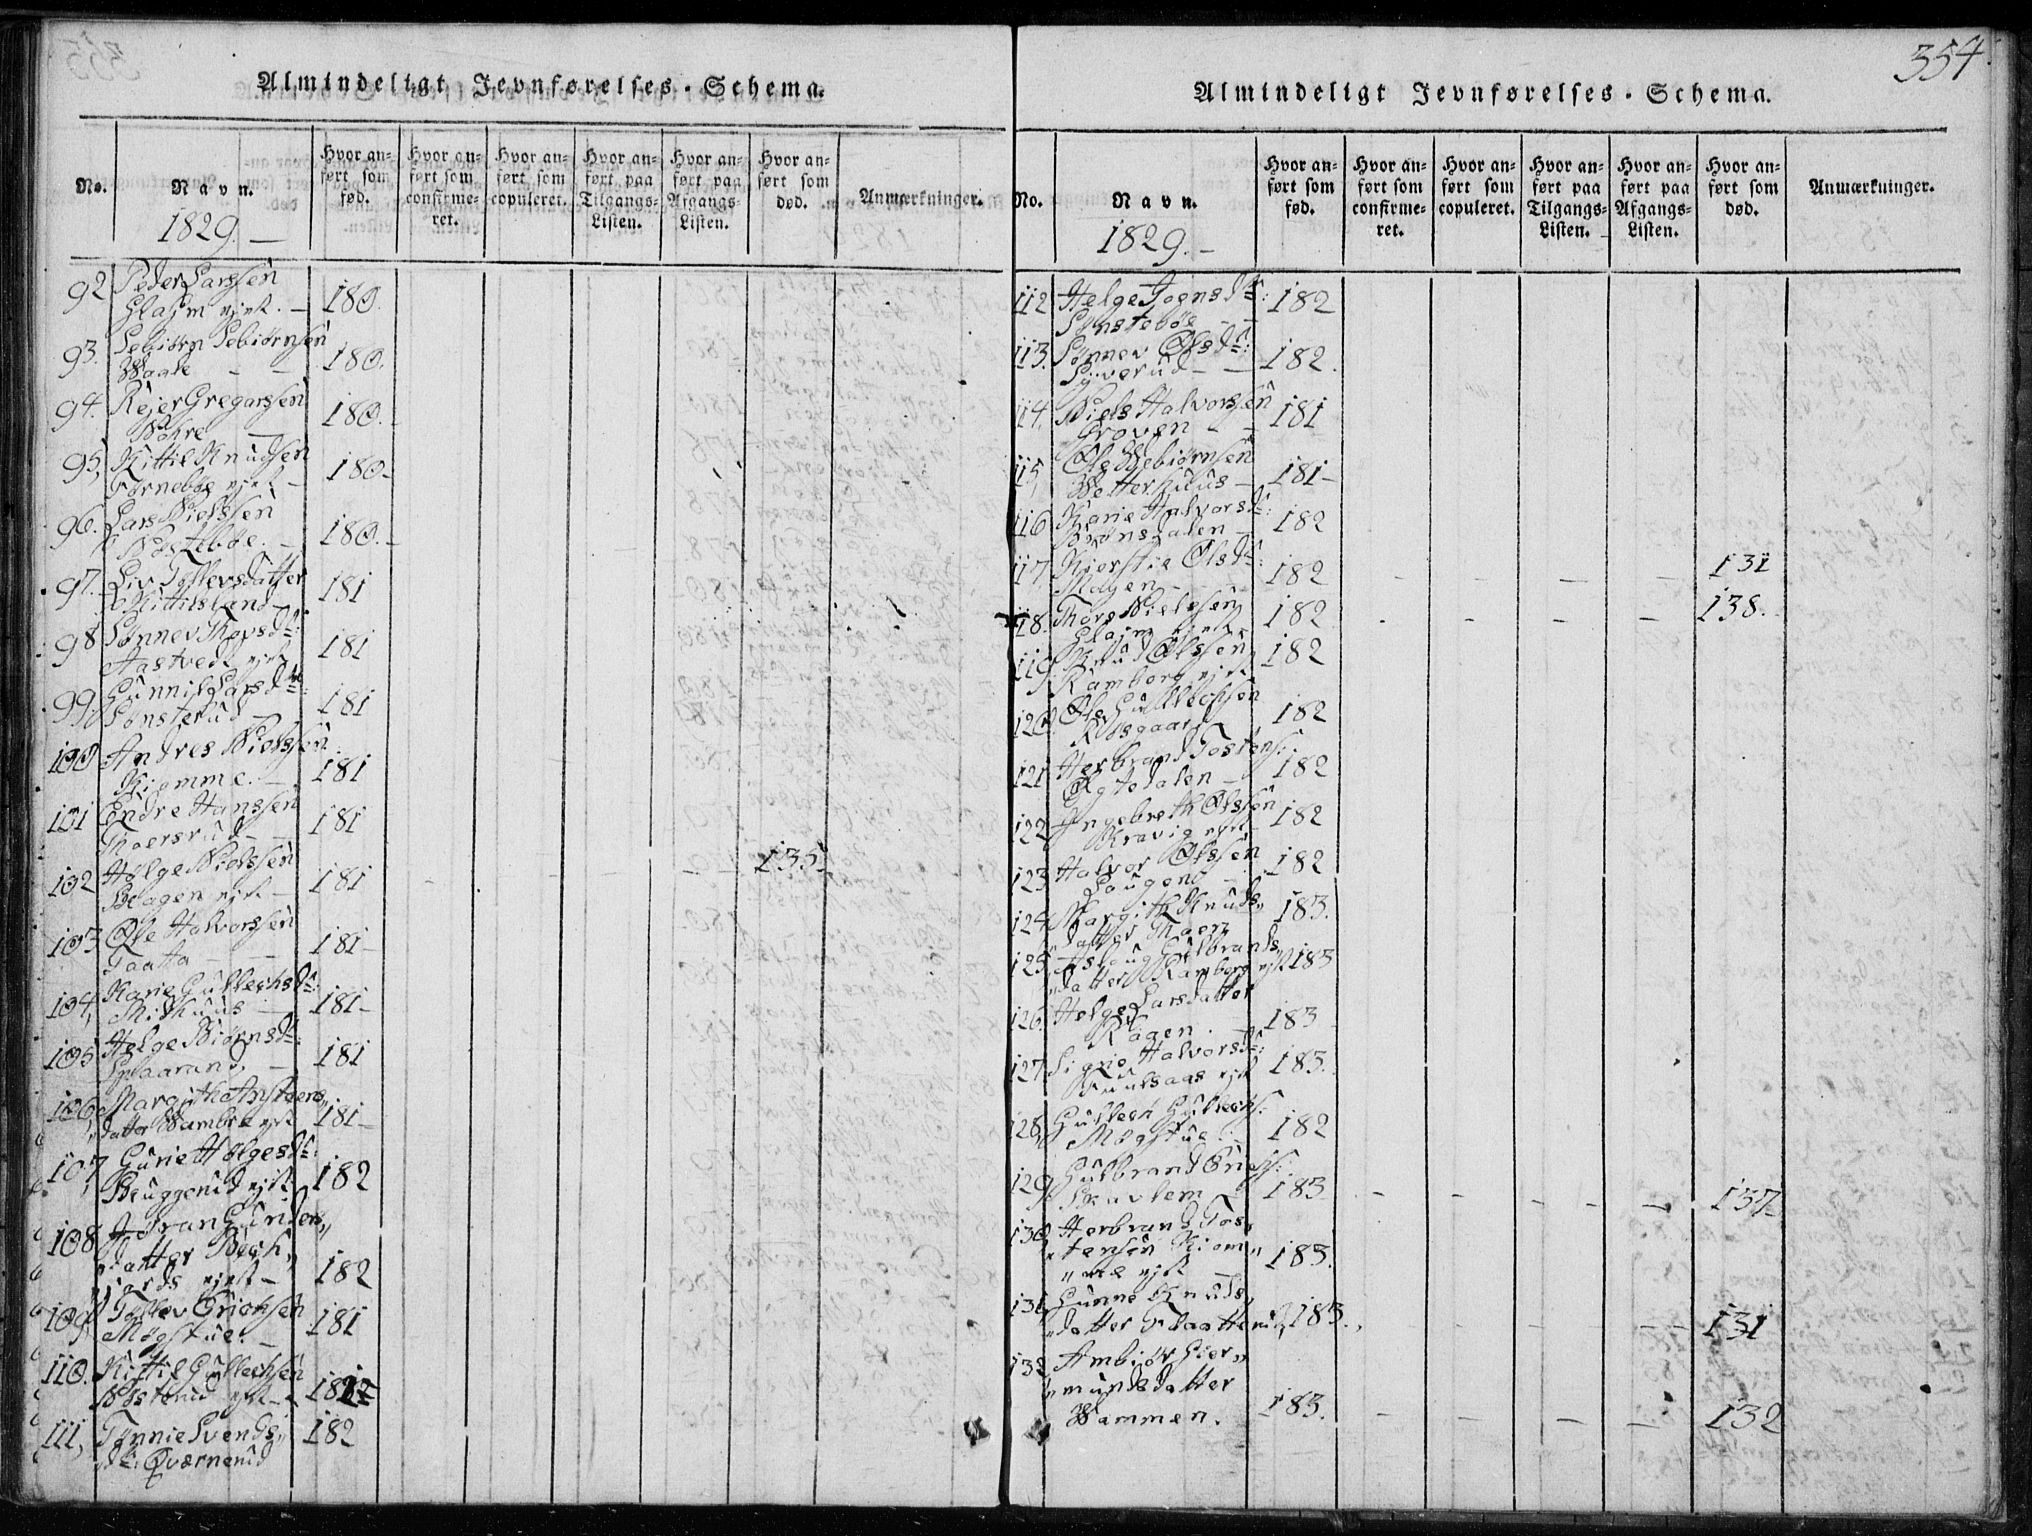 Almindeligt Jevnførelses-Schema.
No.
Navn.
Hvor anført som fød.
Hvor anført som confirmeret.
Hvor anført som copuleret.
Hvor anført paa Tilgangs-Listen.
Hvor anført paa Afgangs-Listen.
Hvor anført som død.
Anmærkninger.
1829.
92 Peder Larssen
ejet. 180.
93. Sebiørn Sebiørnsen
Waale 180.
94. Rejer Gregarssen
180.
95, Kittil Knudsen
Tørnebøe ejet 180
96. Lars Nielssen
Nøstebøe. 180.
97. Liv Tollevsdatter
Kittilsland 181
98 Sønnev Thovsdr:
Aastvedt ejet 181
99. Gunnil Larsdr:
Sønsterud 181
100 Andres Nielssen
Kiomme. 181
101 Endre Hanssen
Thoersrud 181
102 Helge Nielssen
ejet 181 135
103 Ole Halvorssen
Taatta 181
104, Karie Gullechsdr:
181
105 Helge Biørnsdr:
181
106, Margith Ansteens
datter Wambre ejet 181
107, Gurie Helgesdr:
ejet 182
108 Jøran Gunders
datter
ejet 182
109, Tollev Erichsen
Mogstue. 181
110. Kittil Gullechsen
Nøsterud ejet 182
111, Tønnie Svends
dr: Qværnerud 182
354.
Almindeligt Jevnførelses-Schema.
No.
Navn.
Hvor anført som fød.
Hvor anført som confirmeret.
Hvor anført som copuleret.
Hvor anført paa Tilgangs-Listen.
Hvor anført paa Afgangs-Listen.
Hvor anført som død.
Anmærkninger.
1829.
112 Helge Joensdr:
Sønstebøe 182
113. Sønnev Olsdr:
182.
114. Niels Halvorssen
Groven 181
115, Ole Webiørnsen
Wetterhuus 181
116 Karie Halvorsdr:
182
117 Kierstie Olsdr:
Moyen 182 131
118. Thore Nielssen
ejet 182 138.
119 Knud Olssen
Ramberg ejet 182
120. Ole Gullechsen
Rosgaard 182
121 Herbrand Tostens:
182
122 Ingebreth Olssen
Kravig ejet 182
123 Halvor Olssen
Laugene 182
124 Margith Knuds
datter Thoen 183.
125, Aslaug Gulbrands
datter Ramberg ejet 183
126. Helge Larsdatter
183
127. Sigrie Halvorsdr:
ejet 183.
128, Gullech Gullechs:
Mogstue 182
129, Gulbrand Erichs:
Skavlem 183 137
130, Herbrand Tos
tensen Kiom
me ejet 183.
131, Gunne Knuds
datter Flaatterud 183. 131
132, Ambiør Gier
mundsdatter
Wammen. 183. 132